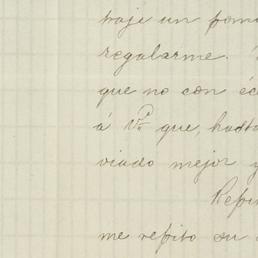 traje un
regalarme.
que no con
á V.d que hasta
viado mejor
me repito su